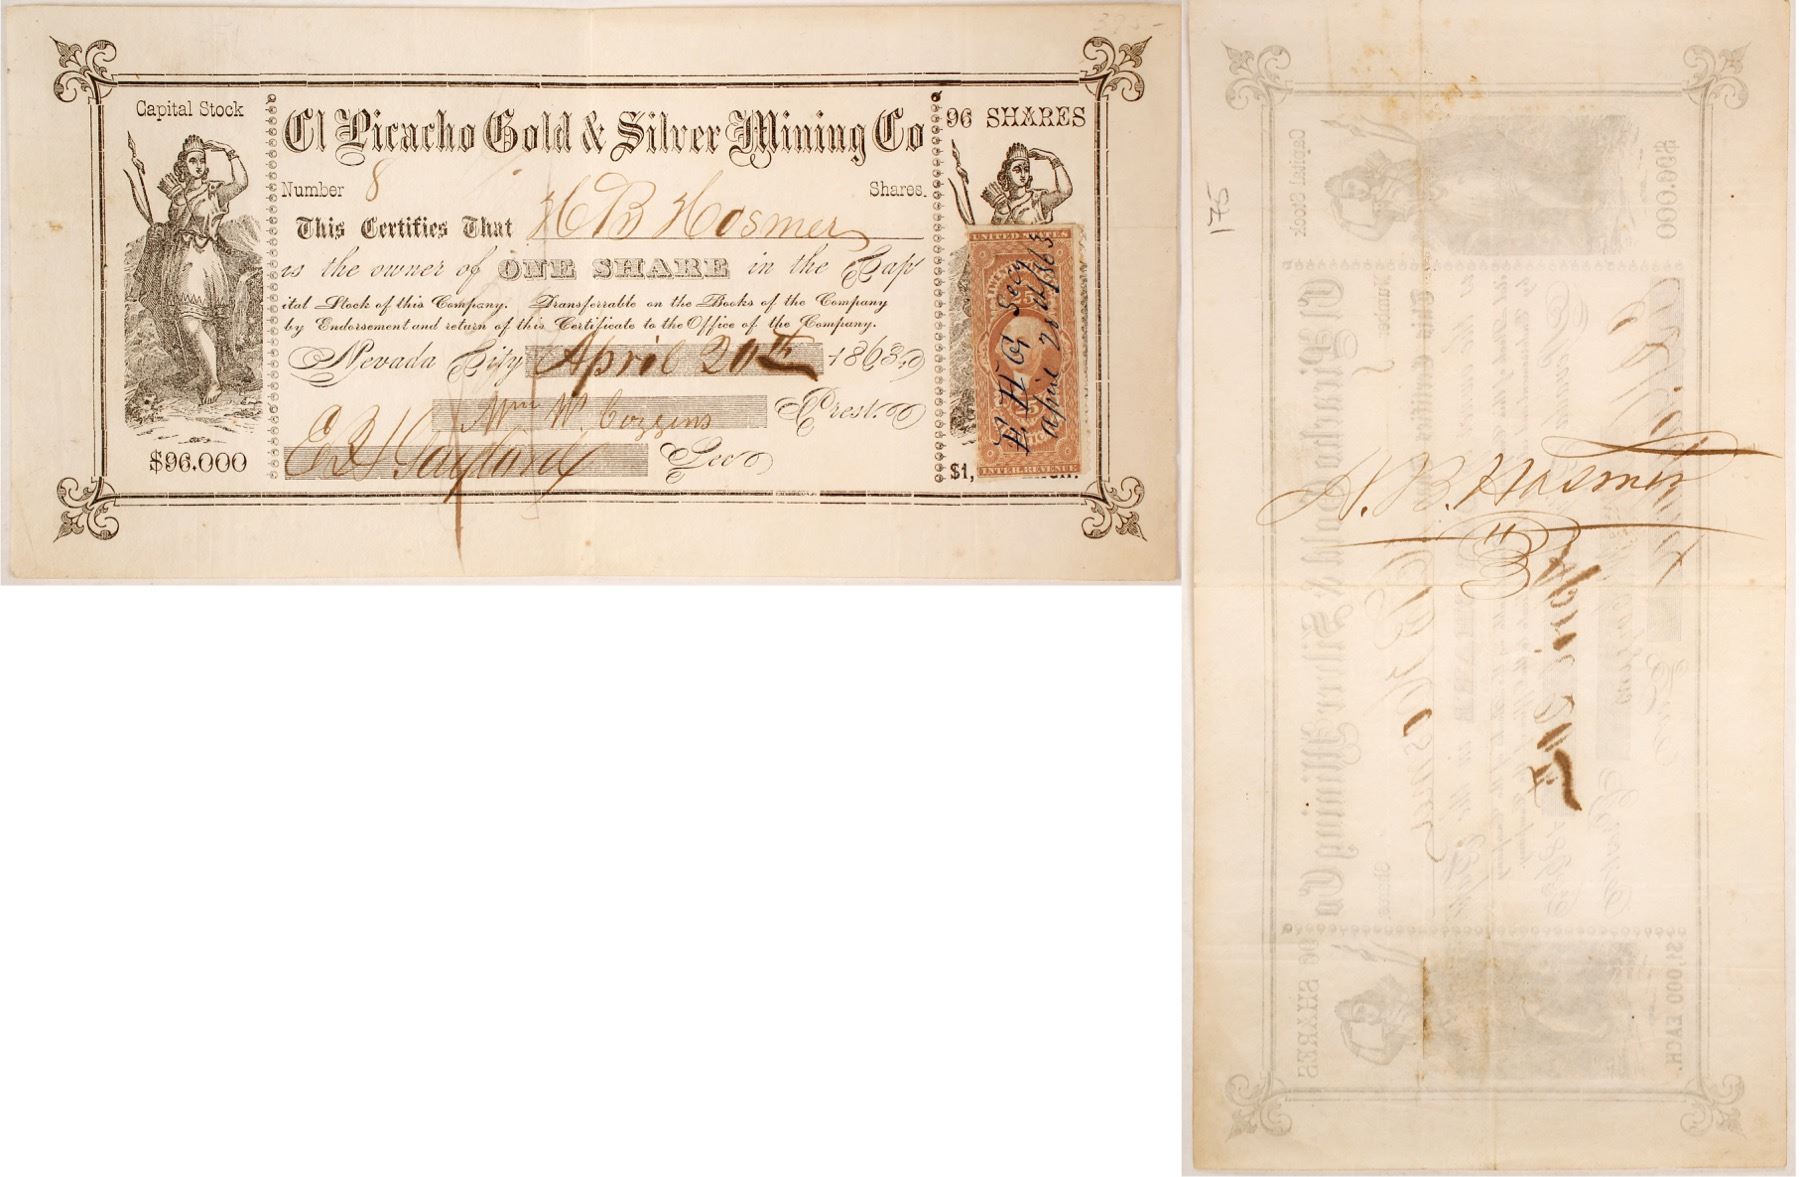 Capital Stock
$96.000
El Picacho Gold & Silver Mining Co
Number 8 Shares.
This Certifies That H B Hosmer
is the owner of ONE SHARE in the Cap
ital Stock of this Company. Transferrable on the Books of the Company
by Endorsement and return of this Certificate to the Office of the Company.
Nevada City April 20th 1863
Wm W. Cozzens Prest.
E B Gaylord Sec
96 SHARES
UNITED STATES
INTER. REVENUE
E. H. G Secy
April 20th/1863
$1,
175
H. B. Hosmer